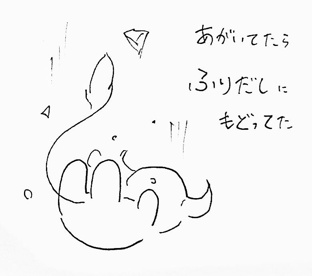 あがいてたら
ふりだしに
もどってた